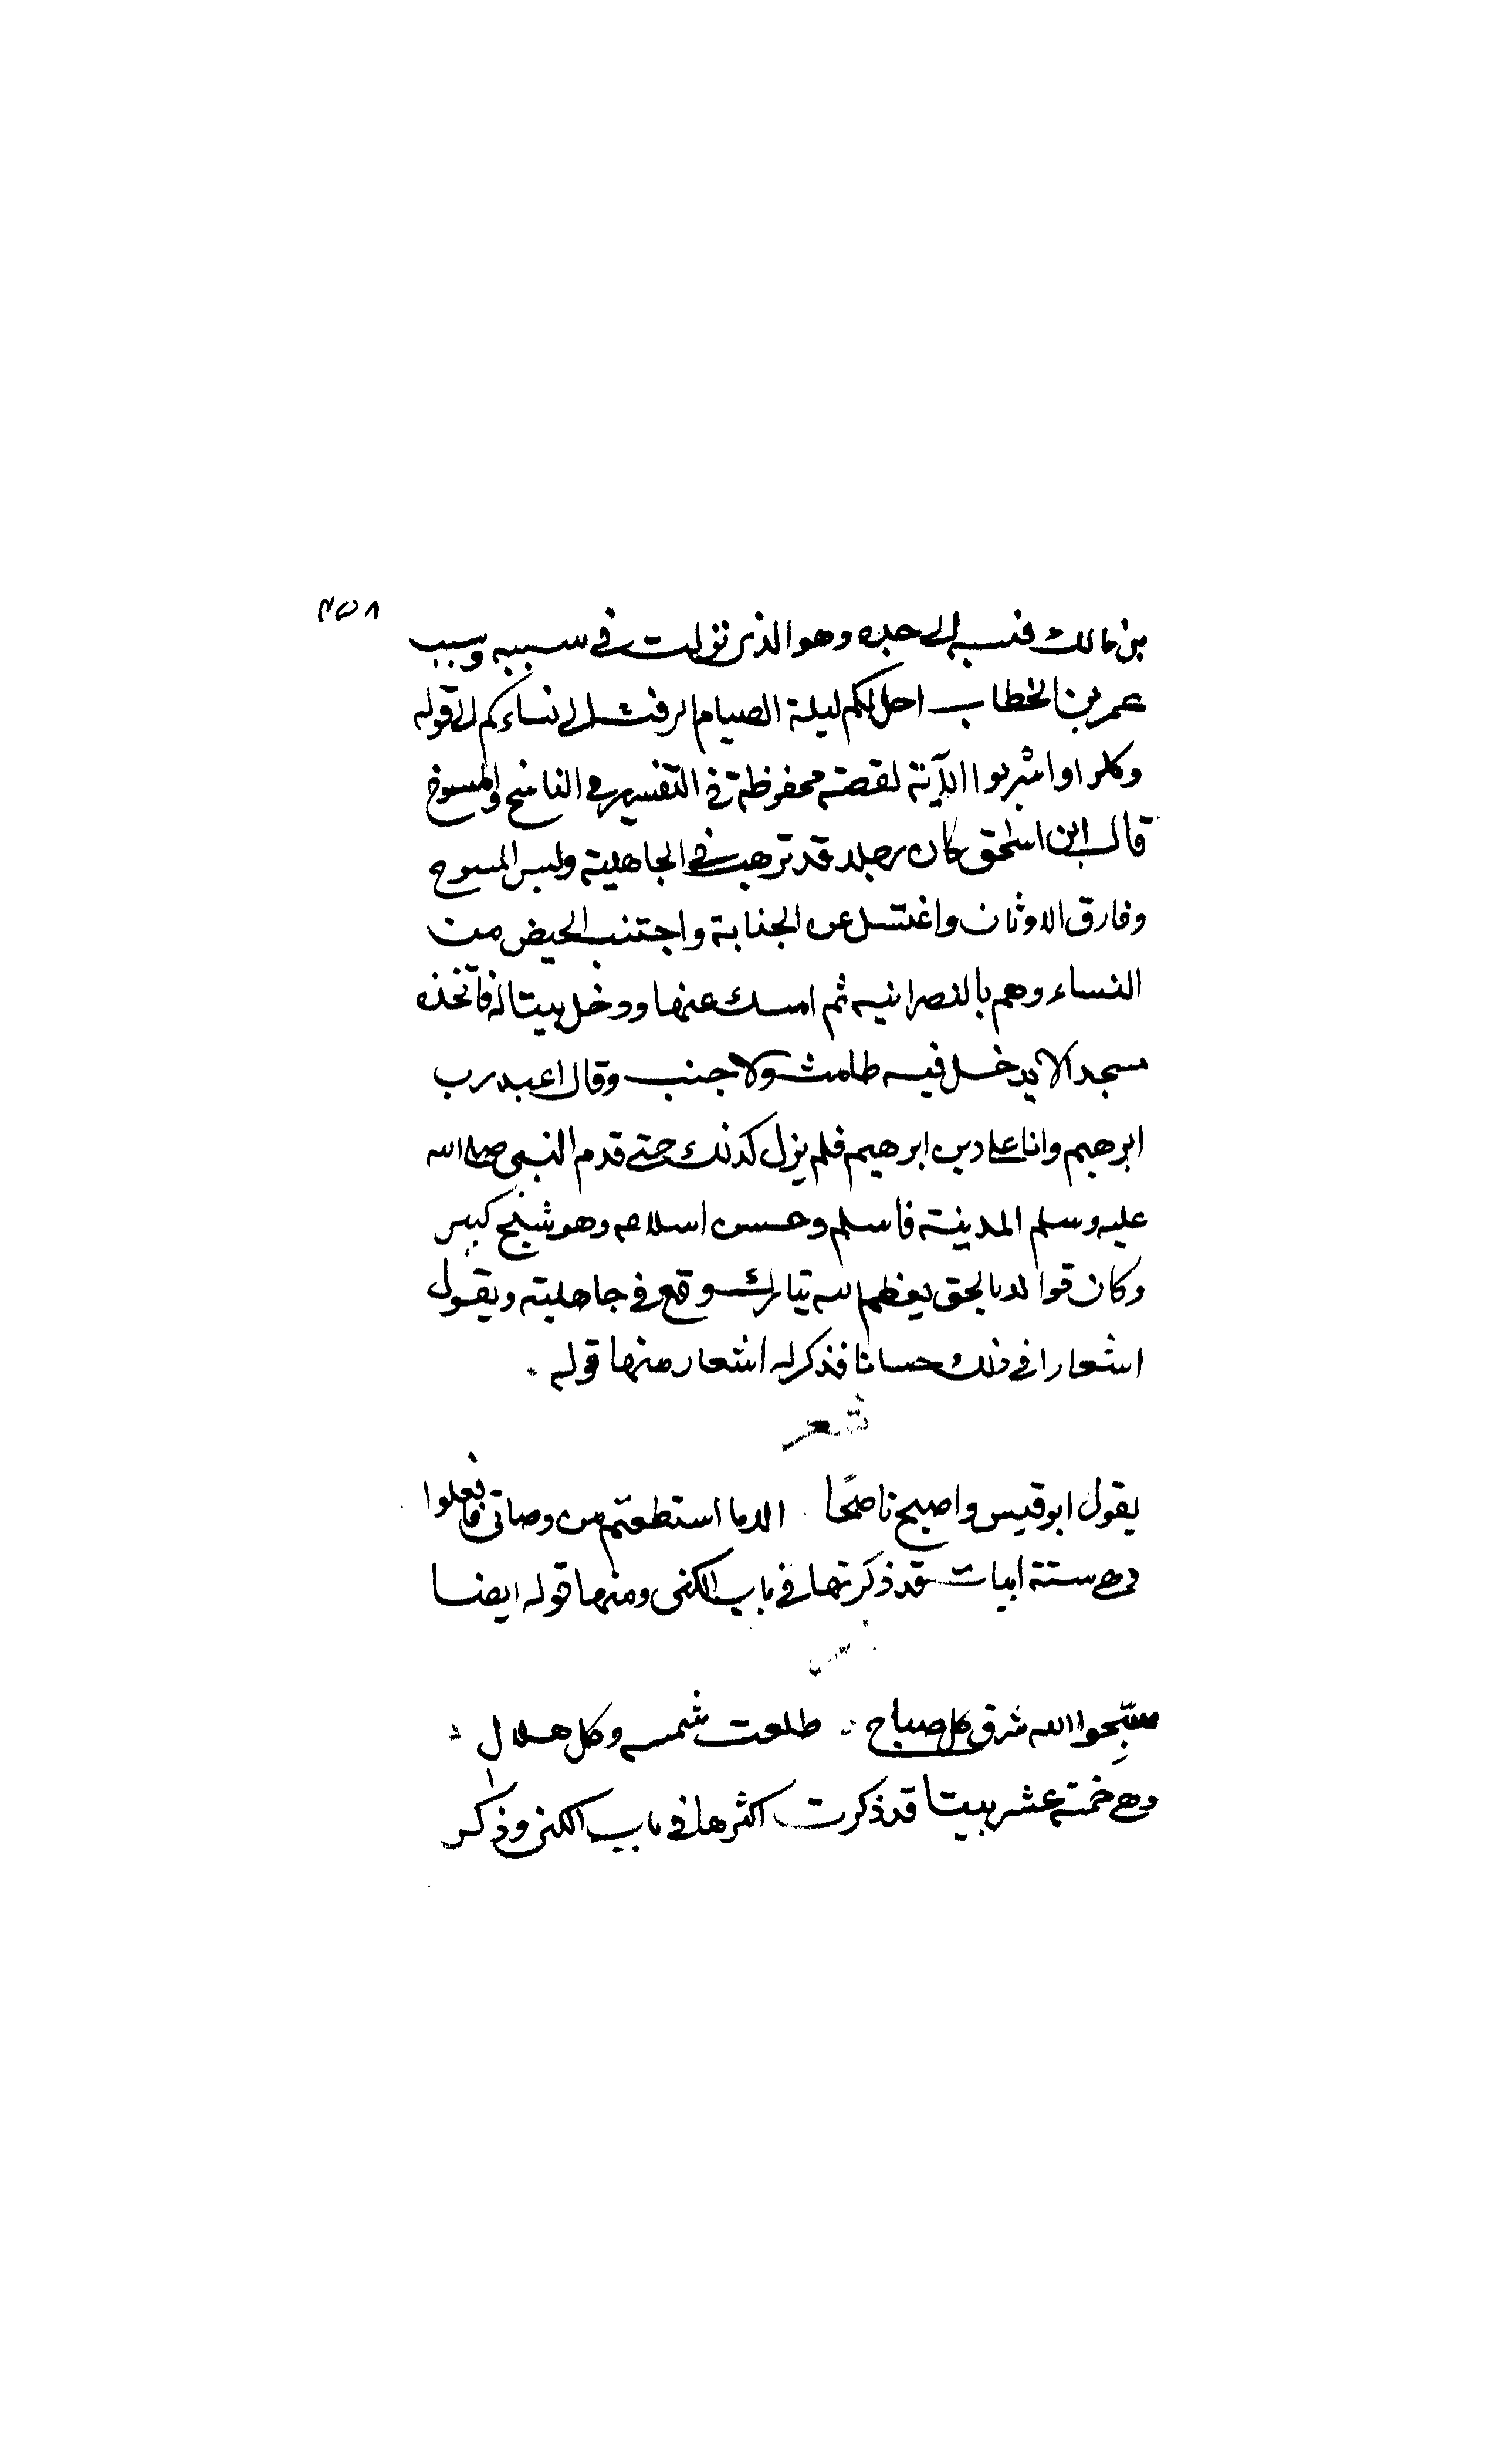 ٤٥٨
بن مالك فنسبه الى جده وهو الذى نزلت فى سببه وسبب
عمر بن الخطاب احل لكم ليلة الصيام الرفث الى نساءكم الى قوله
وكلوا واشربوا الآية لقصة محفوظة فى التفسير وفى الناسخ والمنسوخ
قال ابن اسحق كان رجلا قد ترهب فى الجاهلية ولبس المسوح
وفارق الاوثان واغتسل عن الجنابة واجتنب الحيض من
النساء وهم بالنصرانيه ثم امسك عنها ودخل بيتا له فاتخذه
مسجدا لا يدخل فيه طامث ولا جنب وقال اعبد رب
ابرهيم وانا على دين ابرهيم فلم يزل كذلك حتى قدم النبى صلى الله
عليه وسلم المدينة فاسلم وحسن اسلامه وهو شيخ كبير
وكان قوالا بالحق يعظم الله تبارك وتع فى جاهليته ويقول
اشعارا فى ذلك حسانا فذكر له اشعار منها قوله
شعر
يقول ابو قيس واصبح ناصحًا الا ما استطعتم من وصاتى فافعلوا
وهى ستة ابيات قد ذكرتها فى باب الكنى ومنها قوله ايضا
سبّحوا الله شرق كل صباح طلعت شمسه وكل هلال
وهى خمسة عشر بيتا قد ذكرت اكثرها فى باب الكنى وذكر